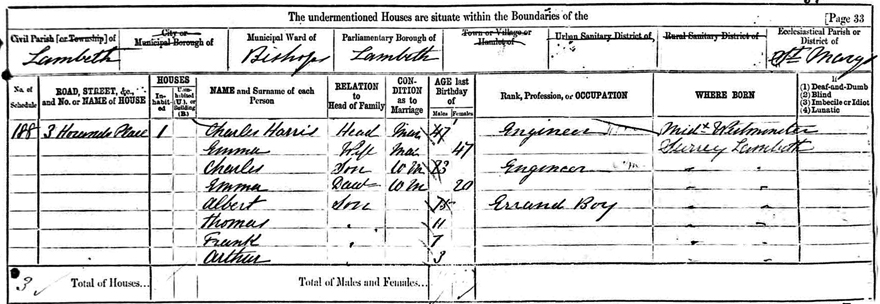 The undermentioned Houses are situate within the Boundaries of the [Page 33
Civil Parish [or Township] of City or Municipal Borough of Municipal Ward of Parliamentary Borough of Town or Village or Hamlet of Urban Sanitary District of Rural Sanitary District of Ecclesiastical Parish or District of
Lambeth Bishops Lambeth St Marys
No. of Schedule ROAD, STREET, &c., and No. or NAME of HOUSE HOUSES Inhabited Uninhabited (U.), or Building (B.) NAME and Surname of each Person RELATION to Head of Family CONDITION as to Marriage AGE last Birthday of Males Females Rank, Profession, or OCCUPATION WHERE BORN (1) Deaf-and-Dumb (2) Blind (3) Imbecile or Idiot (4) Lunatic
188 3 Place 1 Charles Harris Head Mar 47 Engineer Midx Westminster
Emma Wife Mar 47 Surrey Lambeth
Charles Son Un 23 Engineer " "
Emma Daur Un 20 " "
Albert Son 15 Errand Boy " "
Thomas " 11 " "
Frank " 7 " "
Arthur " 3 " "
3 Total of Houses... Total of Males and Females...